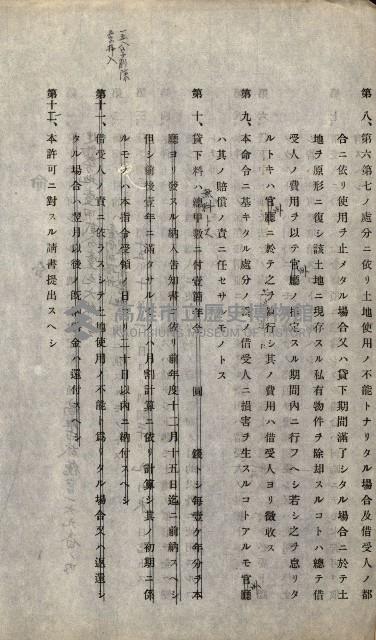 第八、第六第七ノ處分ニ依リ土地使用ノ不能トナリタル場合及借受人ノ都
合ニ依リ使用ヲ止メタル場合又ハ貸下期間滿了シタル場合ニ於テ土
地ヲ原形ニ復シ該土地ニ現存スル私有物件ヲ除却スルコトハ總テ借
受人ノ費用ヲ以テ官廳ノ指定スル期間內ニ行フヘシ若シ之ヲ怠リタ
ルトキハ官廳ニ於テ之ヲ執行シ其ノ費用ハ借受人ヨリ徵收ス
第九、本命令ニ基キタル處分ノ爲メ借受人ニ損害ヲ生スルコトアルモ官廳
ハ其ノ賠償ノ責ニ任セサルモノトス
第十、貸下料ハ總甲數ニ付壹箇年金 圓 錢トシ每壹ケ年分ヲ本
廳ヨリ發スル納入告知書ニ依リ前年度十二月十五日迄ニ前納スヘシ
但シ前後壹年ニ滿タサルトキハ月割計算ニ依リ計算シ其ノ初期ニ係
ルモノハ本指令受領ノ日ヨリ二十日以內ニ納付スヘシ
第十一、借受人ノ責ニ依ラスシテ土地使用ノ不能ト爲リタル場合又ハ返還シ
タル場合ハ翌月以後ノ既納金ハ還付スヘシ
第十二、本許可ニ對スル請書提出スヘシ
高雄市立歷史博物館
KAOHSIUNG MUSEUM OF HISTORY